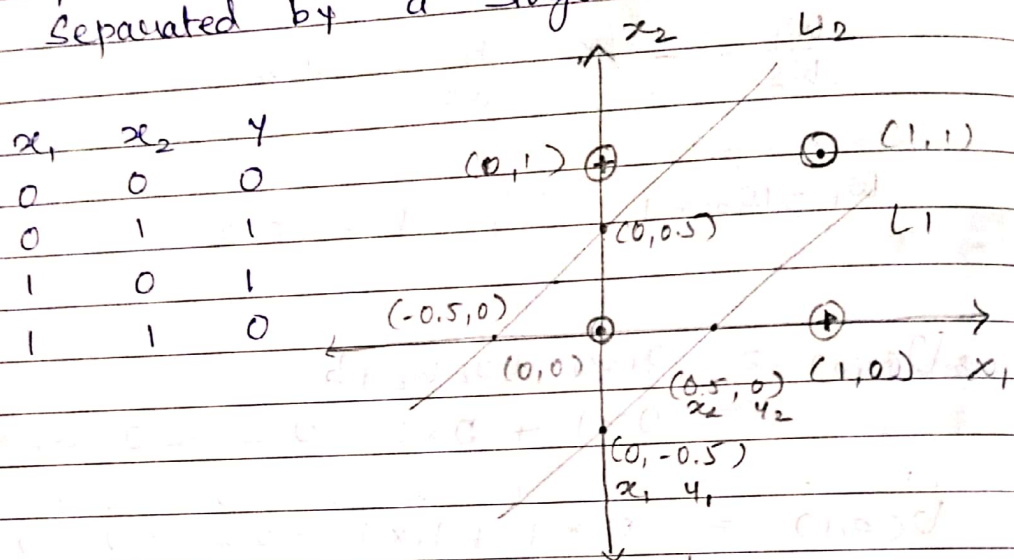 Separated by a
x₂ L2
x₁ x₂ y
0 0 0
0 1 1
1 0 1
1 1 0
(0,1) (1,1)
(0,0.5) L1
(-0.5,0)
(0,0) (0.5,0) (1,0) x₁
x₂ y₂
(0,-0.5)
x₁ y₁